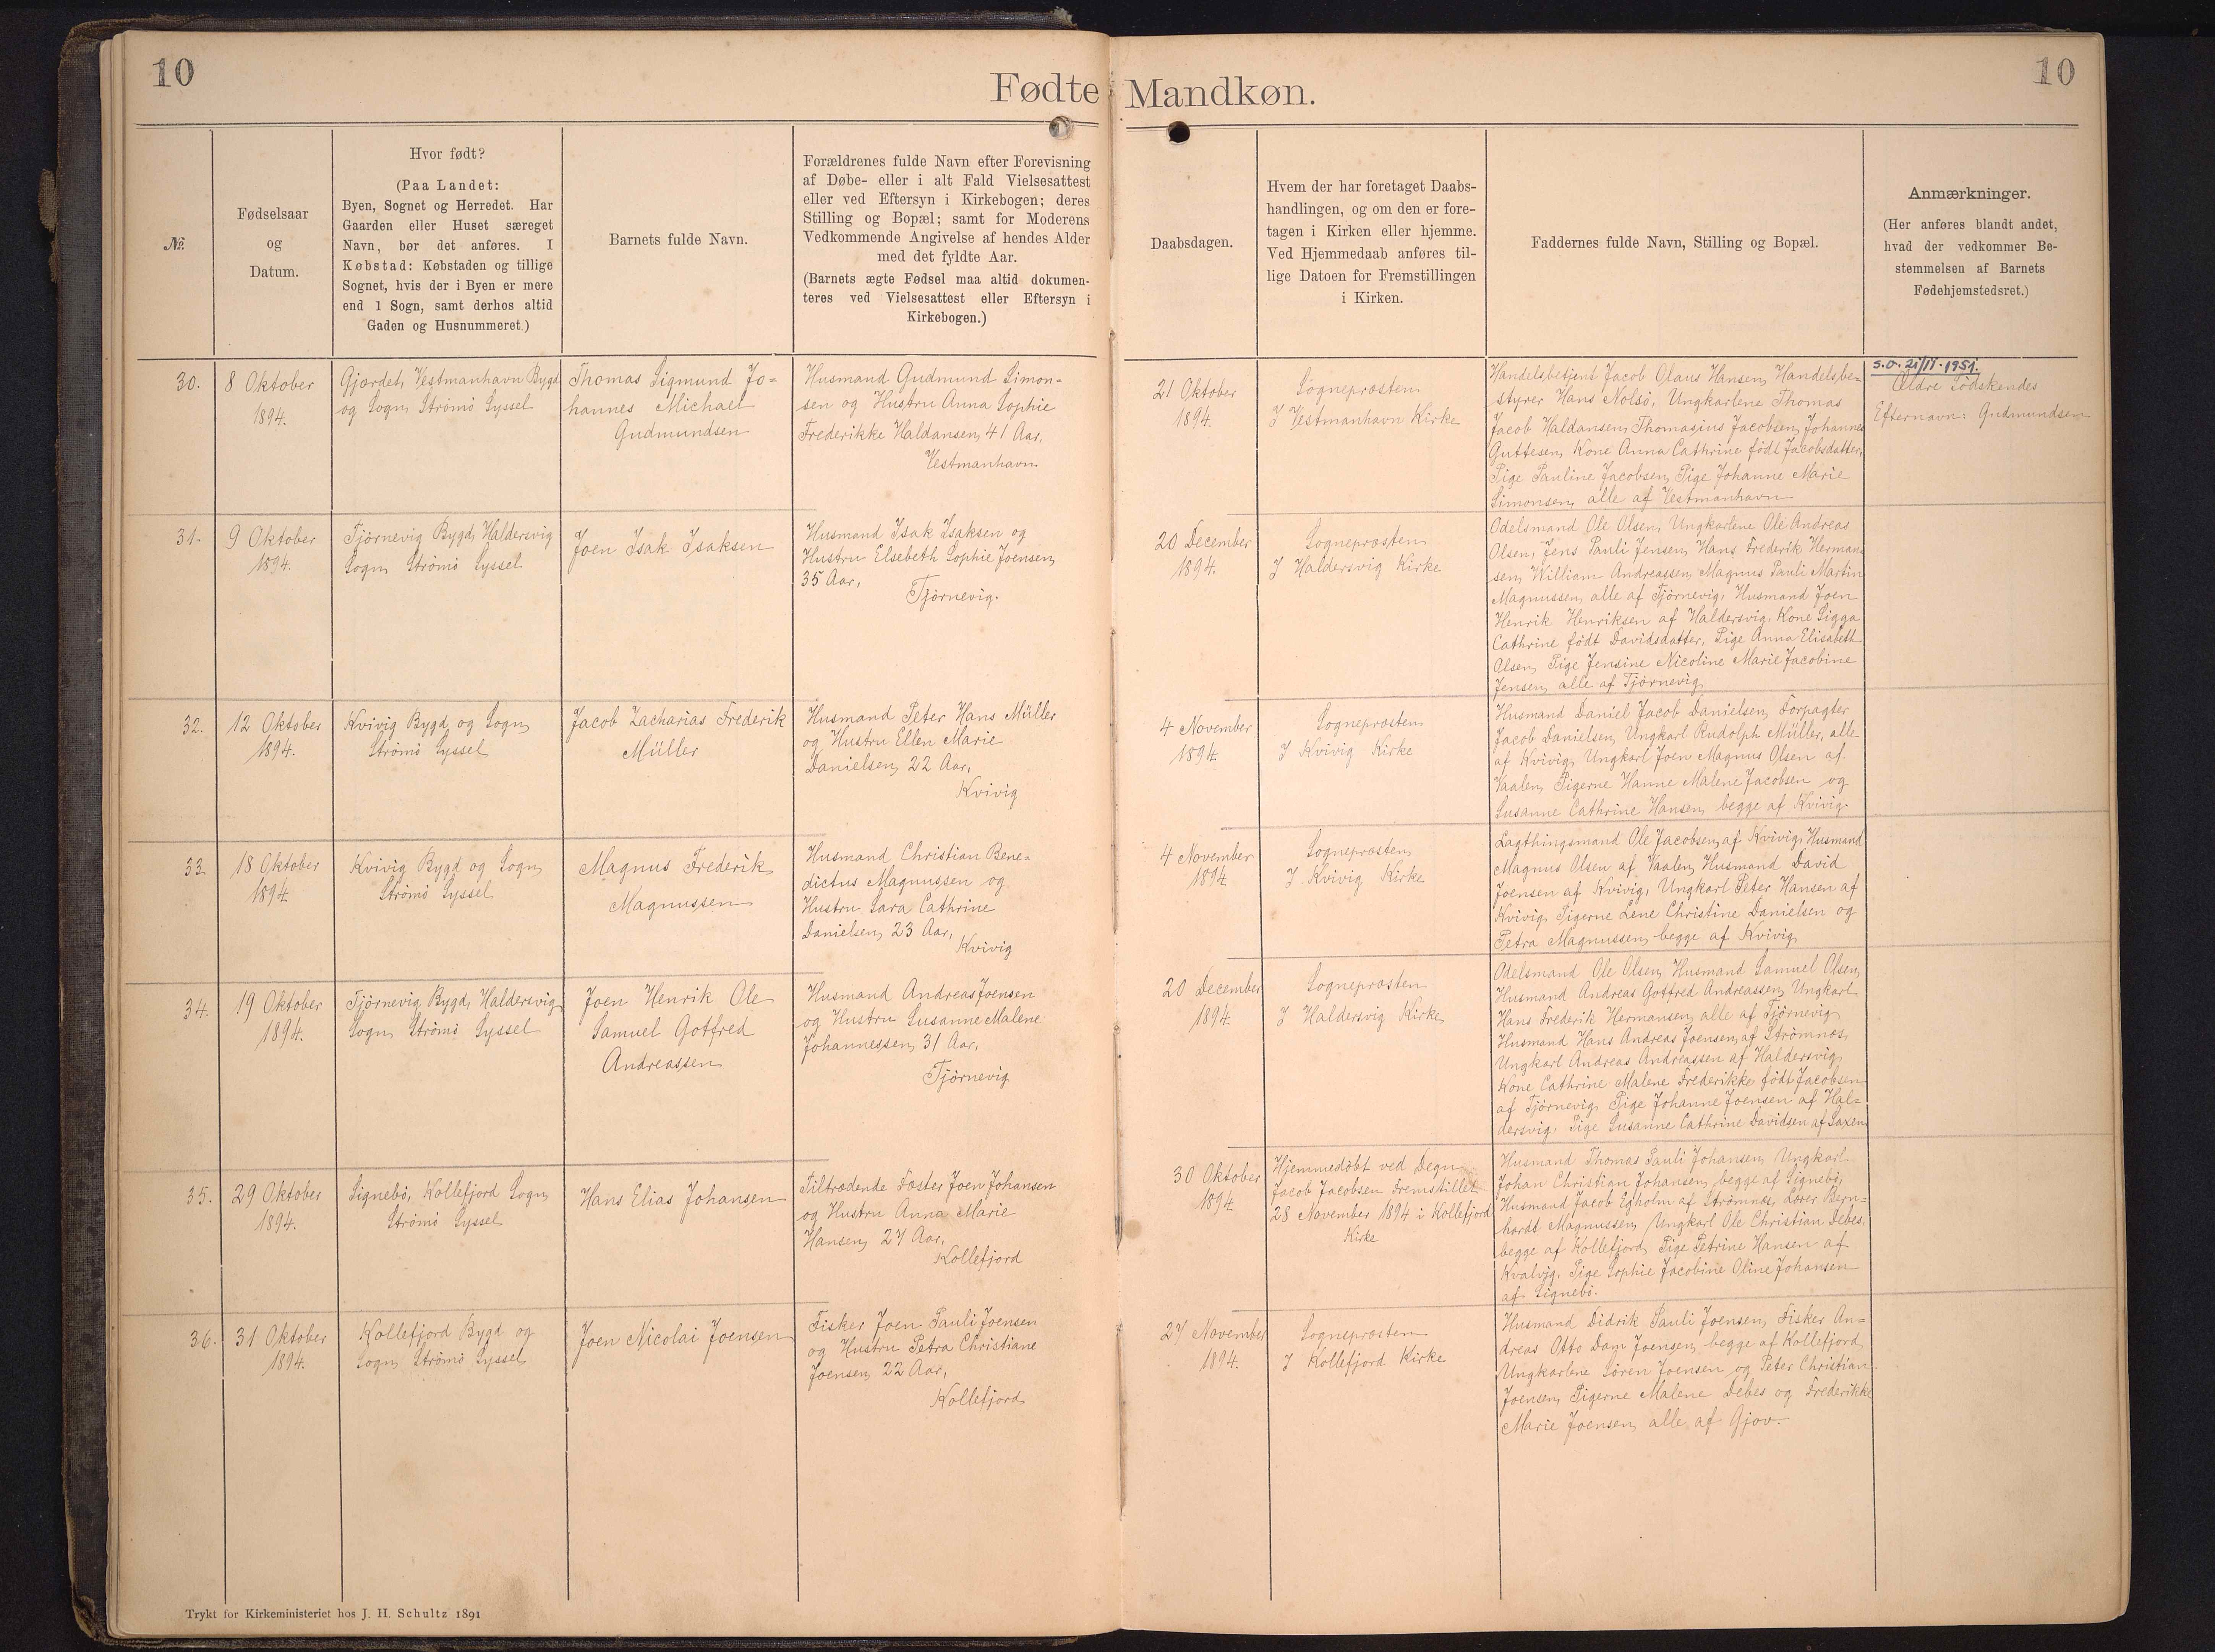 10
10
Fødte Mandkøn.
№.
Fødselsaar
og
Datum.
Hvor født?
(Paa Landet:
Byen, Sognet og Herredet. Har
Gaarden eller Huset særeget
Navn, bør det anføres. I
Købstad: Købstaden og tillige
Sognet, hvis der i Byen er mere
end 1 Sogn, samt derhos altid
Gaden og Husnummeret.)
Barnets fulde Navn.
Forældrenes fulde Navn efter Forevisning
af Døbe- eller i alt Fald Vielsesattest
eller ved Eftersyn i Kirkebogen; deres
Stilling og Bopæl; samt for Moderens
Vedkommende Angivelse af hendes Alder
med det fyldte Aar.
(Barnets ægte Fødsel maa altid dokumen-
teres ved Vielsesattest eller Eftersyn i
Kirkebogen.)
Daabsdagen.
Hvem der har foretaget Daabs-
handlingen, og om den er fore-
tagen i Kirken eller hjemme.
Ved Hjemmedaab anføres til-
lige Datoen for Fremstillingen
i Kirken.
Faddernes fulde Navn, Stilling og Bopæl.
Anmærkninger.
(Her anføres blandt andet,
hvad der vedkommer Be-
stemmelsen af Barnets
Fødehjemstedsret.)
30.
8 Oktober
1894.
Gjærdet, Vestmanhavn Bygd
og Sogn, Strömö Syssel
Thomas Sigmund Jo=
hannes Michael
Gudmundsen
Husmand Gudmund Simon=
sen og Hustru Anna Sophie
Frederikke Haldansen, 41 Aar,
Vestmanhavn
21 Oktober
1894.
Sognepræsten
I Vestmanhavn Kirke
Handelsbetjent Jacob Olaus Hansen, Handelsbe=
styrer Hans Nolsö, Ungkarlene Thomas
Jacob Haldansen, Thomasius Jacobsen, Johannes
Guttesen, Kone Anna Cathrine født Jacobsdatter,
Pige Pauline Jacobsen, Pige Johanne Marie
Simonsen, alle af Vestmanhavn
S.O. 21/11-1951.
Ældre Södskendes
Efternavn: Gudmundsen
31.
9 Oktober
1894.
Tjörnevig Bygd, Haldersvig
Sogn, Strömö Syssel
Joen Isak Isaksen
Husmand Isak Isaksen og
Hustru Elsebeth Sophie Joensen,
35 Aar,
Tjörnevig.
20 December
1894.
Sognepræsten
I Haldersvig Kirke
Odelsmand Ole Olsen, Ungkarlene Ole Andreas
Olsen, Jens Pauli Jensen, Hans Frederik Herman=
sen, William Andreassen, Magnus Pauli Martin
Magnussen, alle af Tjörnevig, Husmand Joen
Henrik Henriksen af Haldersvig, Kone Sigga
Cathrine født Davidsdatter, Pige Anna Elisabeth
Olsen, Pige Jensine Nicoline Marie Jacobine
Jensen, alle af Tjörnevig
32.
12 Oktober
1894.
Kvivig Bygd og Sogn,
Strömö Syssel
Jacob Zacharias Frederik
Müller
Husmand Peter Hans Müller
og Hustru Ellen Marie
Danielsen, 22 Aar,
Kvivig
4 November
1894.
Sognepræsten
I Kvivig Kirke
Husmand Daniel Jacob Danielsen, Forpagter
Jacob Danielsen, Ungkarl Rudolph Müller, alle
af Kvivig, Ungkarl Joen Magnus Olsen af
Vaalen, Pigerne Hanne Malene Jacobsen og
Susanne Cathrine Hansen, begge af Kvivig.
33
18 Oktober
1894
Kvivig Bygd og Sogn,
Strömö Syssel
Magnus Frederik
Magnussen
Husmand Christian Bene=
dictus Magnussen og
Hustru Sara Cathrine
Danielsen, 23 Aar,
Kvivig
4 November
1894
Sognepræsten
I Kvivig Kirke
Lagthingsmand Ole Jacobsen, af Kvivig, Husmand
Magnus Olsen af Vaalen, Husmand David
Joensen af Kvivig, Ungkarl Peter Hansen af
Kvivig, Pigerne Lene Christine Danielsen og
Petra Magnussen, begge af Kvivig
34.
19 Oktober
1894.
Tjörnevig Bygd, Haldersvig
Sogn, Strömö Syssel
Joen Henrik Ole
Samuel Gotfred
Andreassen
Husmand Andreas Joensen
og Hustru Susanne Malene
Johannessen, 31 Aar,
Tjörnevig
20 December
1894.
Sognepræsten
I Haldersvig Kirke
Odelsmand Ole Olsen, Husmand Samuel Olsen,
Husmand Andreas Gotfred Andreassen, Ungkarl
Hans Frederik Hermansen, alle af Tjörnevig,
Husmand Hans Andreas Joensen, af Strömnæs,
Ungkarl Andreas Andreassen af Haldersvig,
Kone Cathrine Malene Frederikke født Jacobsen
af Tjörnevig, Pige Johanne Joensen af Hal=
dersvig, Pige Susanne Cathrine Davidsen af Saxen
35.
29 Oktober
1894.
Signebö, Kollefjord Sogn,
Strömö Syssel
Hans Elias Johansen
Tiltrædende Fæster Joen Johansen
og Hustru Anna Marie
Hansen, 27 Aar,
Kollefjord
30 Oktober
1894
Hjemmedöbt ved Degn
Jacob Jacobsen Fremstillet
28 November 1894 i Kollefjord
Kirke
Husmand Thomas Pauli Johansen, Ungkarl
Johan Christian Johansen, begge af Signebö,
Husmand Jacob Egholm af Strömnæs, Lærer Bern=
hardt Magnussen, Ungkarl Ole Christian Debes,
begge af Kollefjord, Pige Petrine Hansen af
Kvalvig, Pige Sophie Jacobine Oline Johansen
af Signebö.
36.
31 Oktober
1894.
Kollefjord Bygd og
Sogn, Strömö Syssel
Joen Nicolai Joensen
Fisker Joen Pauli Joensen
og Hustru Petra Christiane
Joensen, 22 Aar,
Kollefjord
27 November
1894.
Sognepræsten
I Kollefjord Kirke
Husmand Didrik Pauli Joensen, Fisker An=
dreas Otto Dam Joensen, begge af Kollefjord,
Ungkarlene Sören Joensen og Peter Christian
Joensen, Pigerne Malene Debes og Frederikke
Marie Joensen, alle af Gjov.
Trykt for Kirkeministeriet hos J. H. Schultz 1891